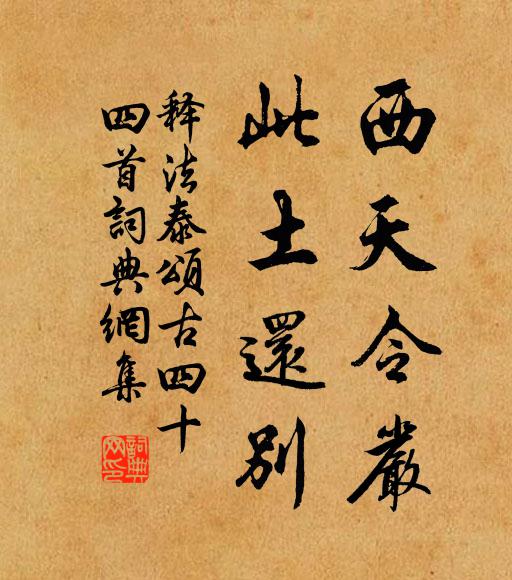 西天令嚴
此土還別
释法泰頌古四十
四首詞典網集
詞典網印